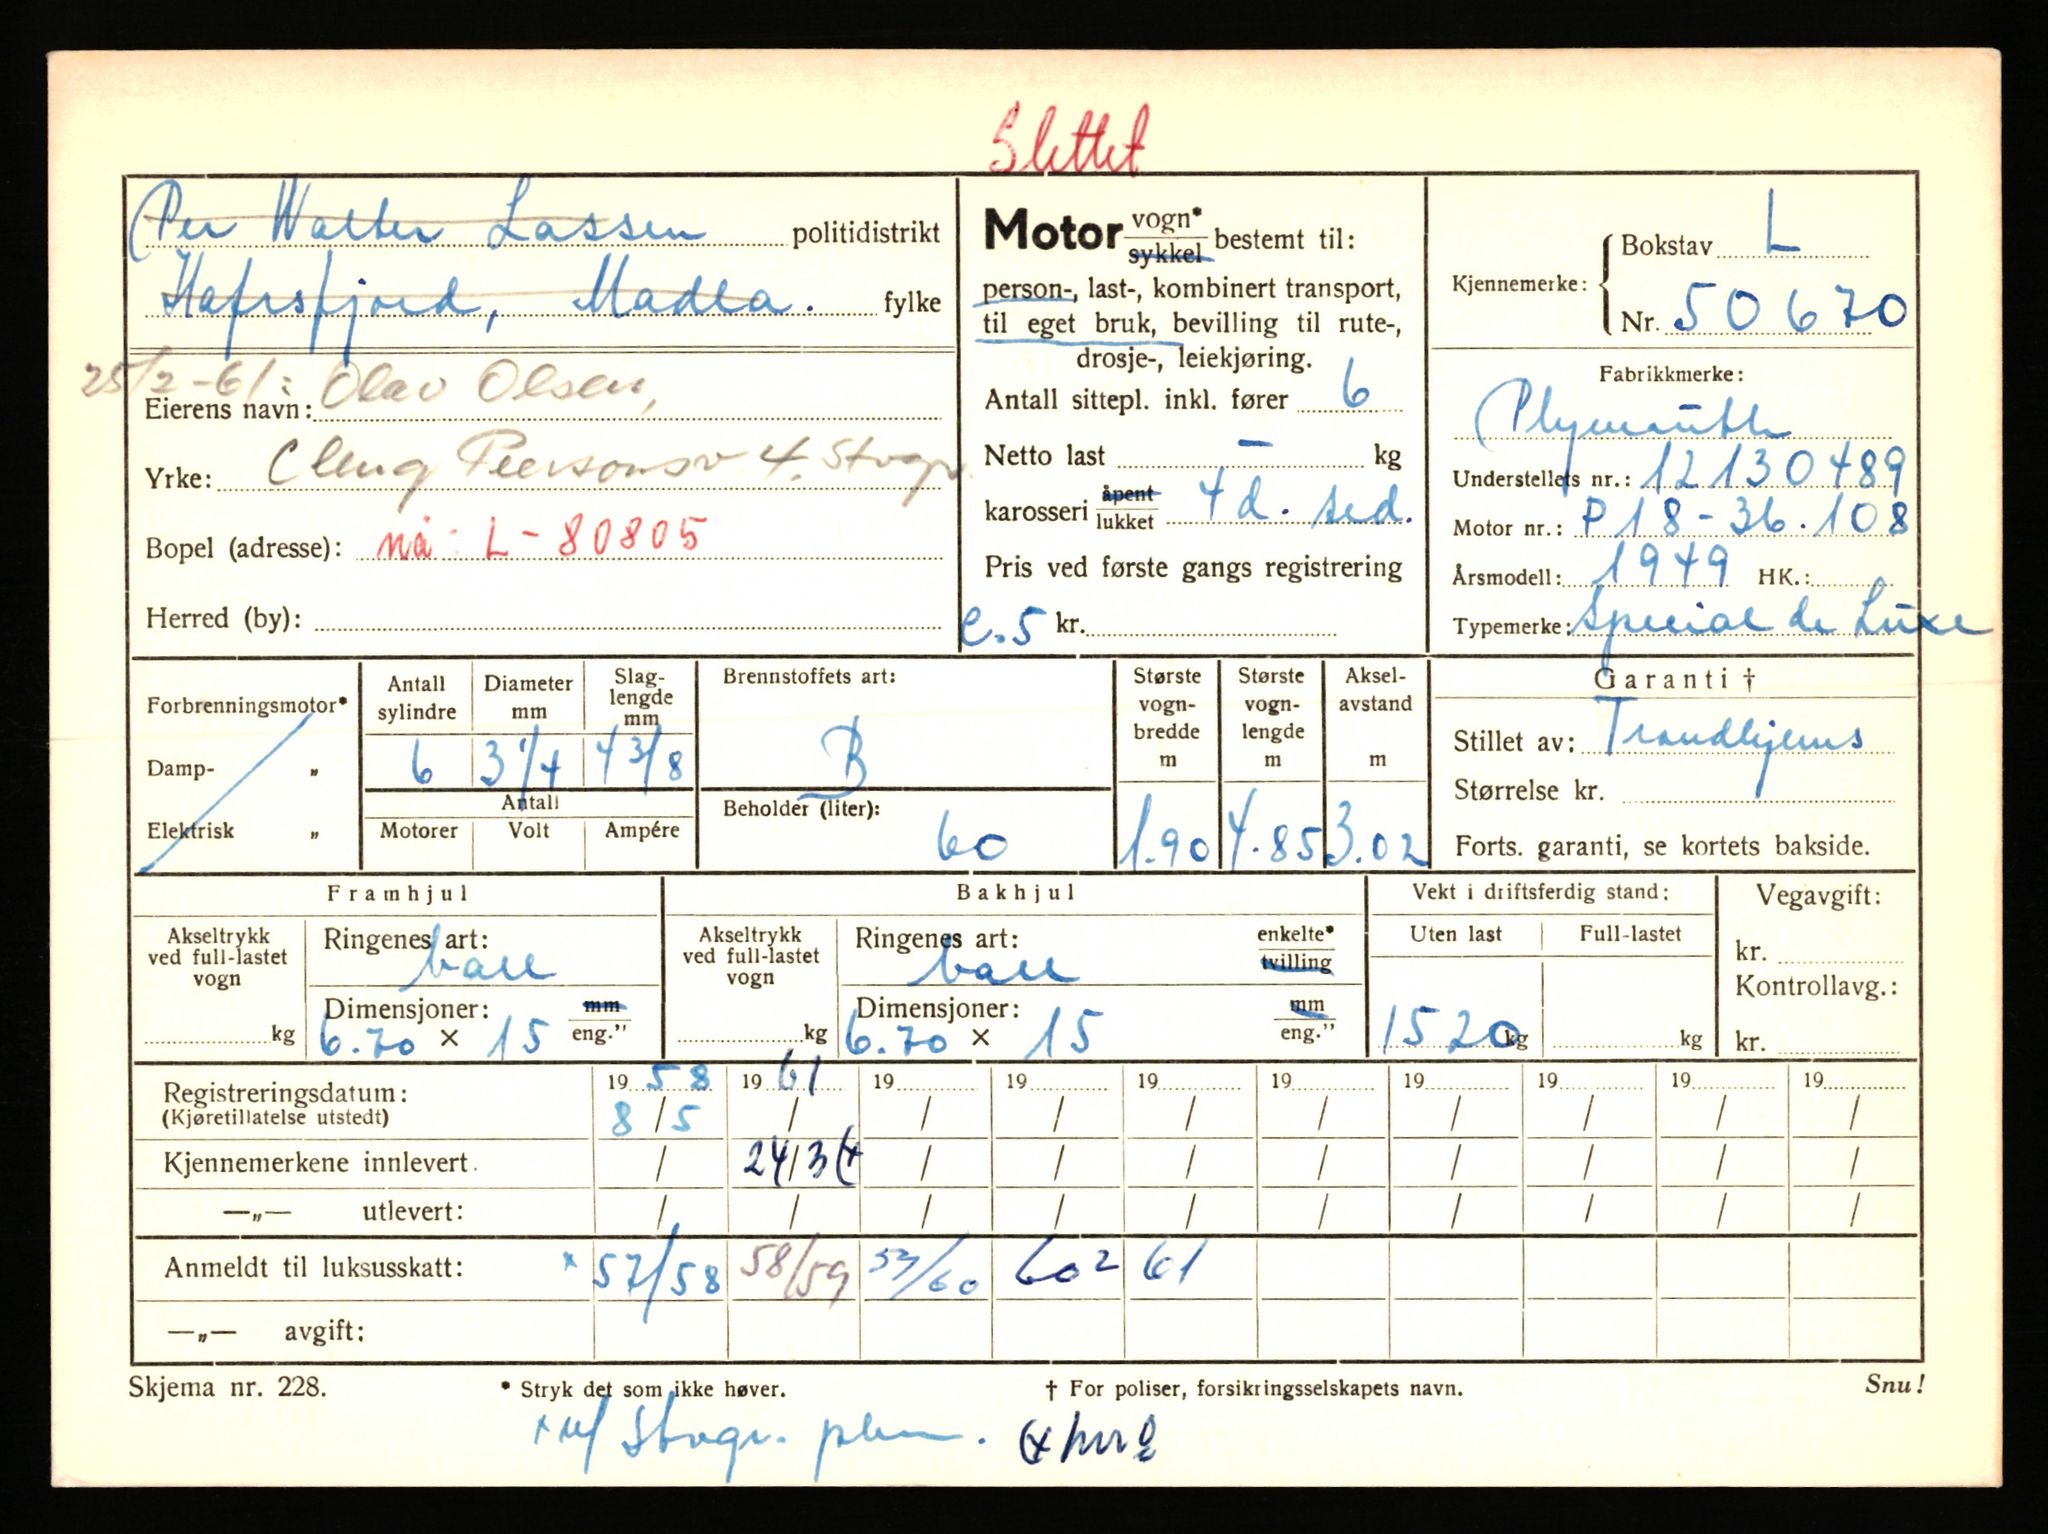 Slettet
Per Walter Lassen politidistrikt
Hafrsfjord, Madla. fylke
25/2-61: Olav Olsen,
Eierens navn:
Cleng Peersonsv 4. Stvgr.
Yrke:
Bopel (adresse): nå: L-80805
Herred (by):
Motor vogn* sykkel bestemt til:
person-, last-, kombinert transport,
til eget bruk, bevilling til rute-,
drosje-, leiekjøring.
Antall sittepl. inkl. fører 6
Netto last — kg
karosseri åpent lukket 4d. sed.
Pris ved første gangs registrering
e.5 kr.
Kjennemerke: Bokstav L
Nr. 50670
Fabrikkmerke:
Plymouth
Understellets nr.: 12130489
Motor nr.: P18-36.108
Årsmodell: 1949 HK.:
Typemerke: Special de Luxe
Forbrenningsmotor*
Damp- „
Elektrisk „
Antall sylindre
6
Diameter mm
3 1/4
Slag-lengde mm
4 3/8
Antall
Motorer Volt Ampére
Brennstoffets art:
B
Beholder (liter):
60
Største vogn-bredde m
1.90
Største vogn-lengde m
4.85
Aksel-avstand m
3.02
Garanti †
Stillet av: Trondhjems
Størrelse kr.
Forts. garanti, se kortets bakside.
Framhjul
Akseltrykk ved full-lastet vogn
kg
Ringenes art:
ball
Dimensjoner: mm
6.70 × 15 eng.”
Bakhjul
Akseltrykk ved full-lastet vogn
kg
Ringenes art: enkelte*
ball tvilling
Dimensjoner: mm
6.70 × 15 eng.”
Vekt i driftsferdig stand:
Uten last Full-lastet
1520 kg kg
Vegavgift:
kr.
Kontrollavg.:
kr.
Registreringsdatum: 19 58 19 61 19 19 19 19 19 19 19 19
(Kjøretillatelse utstedt) 8 / 5 / / / / / / / / /
Kjennemerkene innlevert. / 24/3 (x / / / / / / / /
—„— utlevert: / / / / / / / / / /
Anmeldt til luksusskatt: x 57/58 58/59 59/60 60 2 61
—„— avgift:
Skjema nr. 228. * Stryk det som ikke høver. † For poliser, forsikringsselskapets navn. Snu!
x Stvgr.